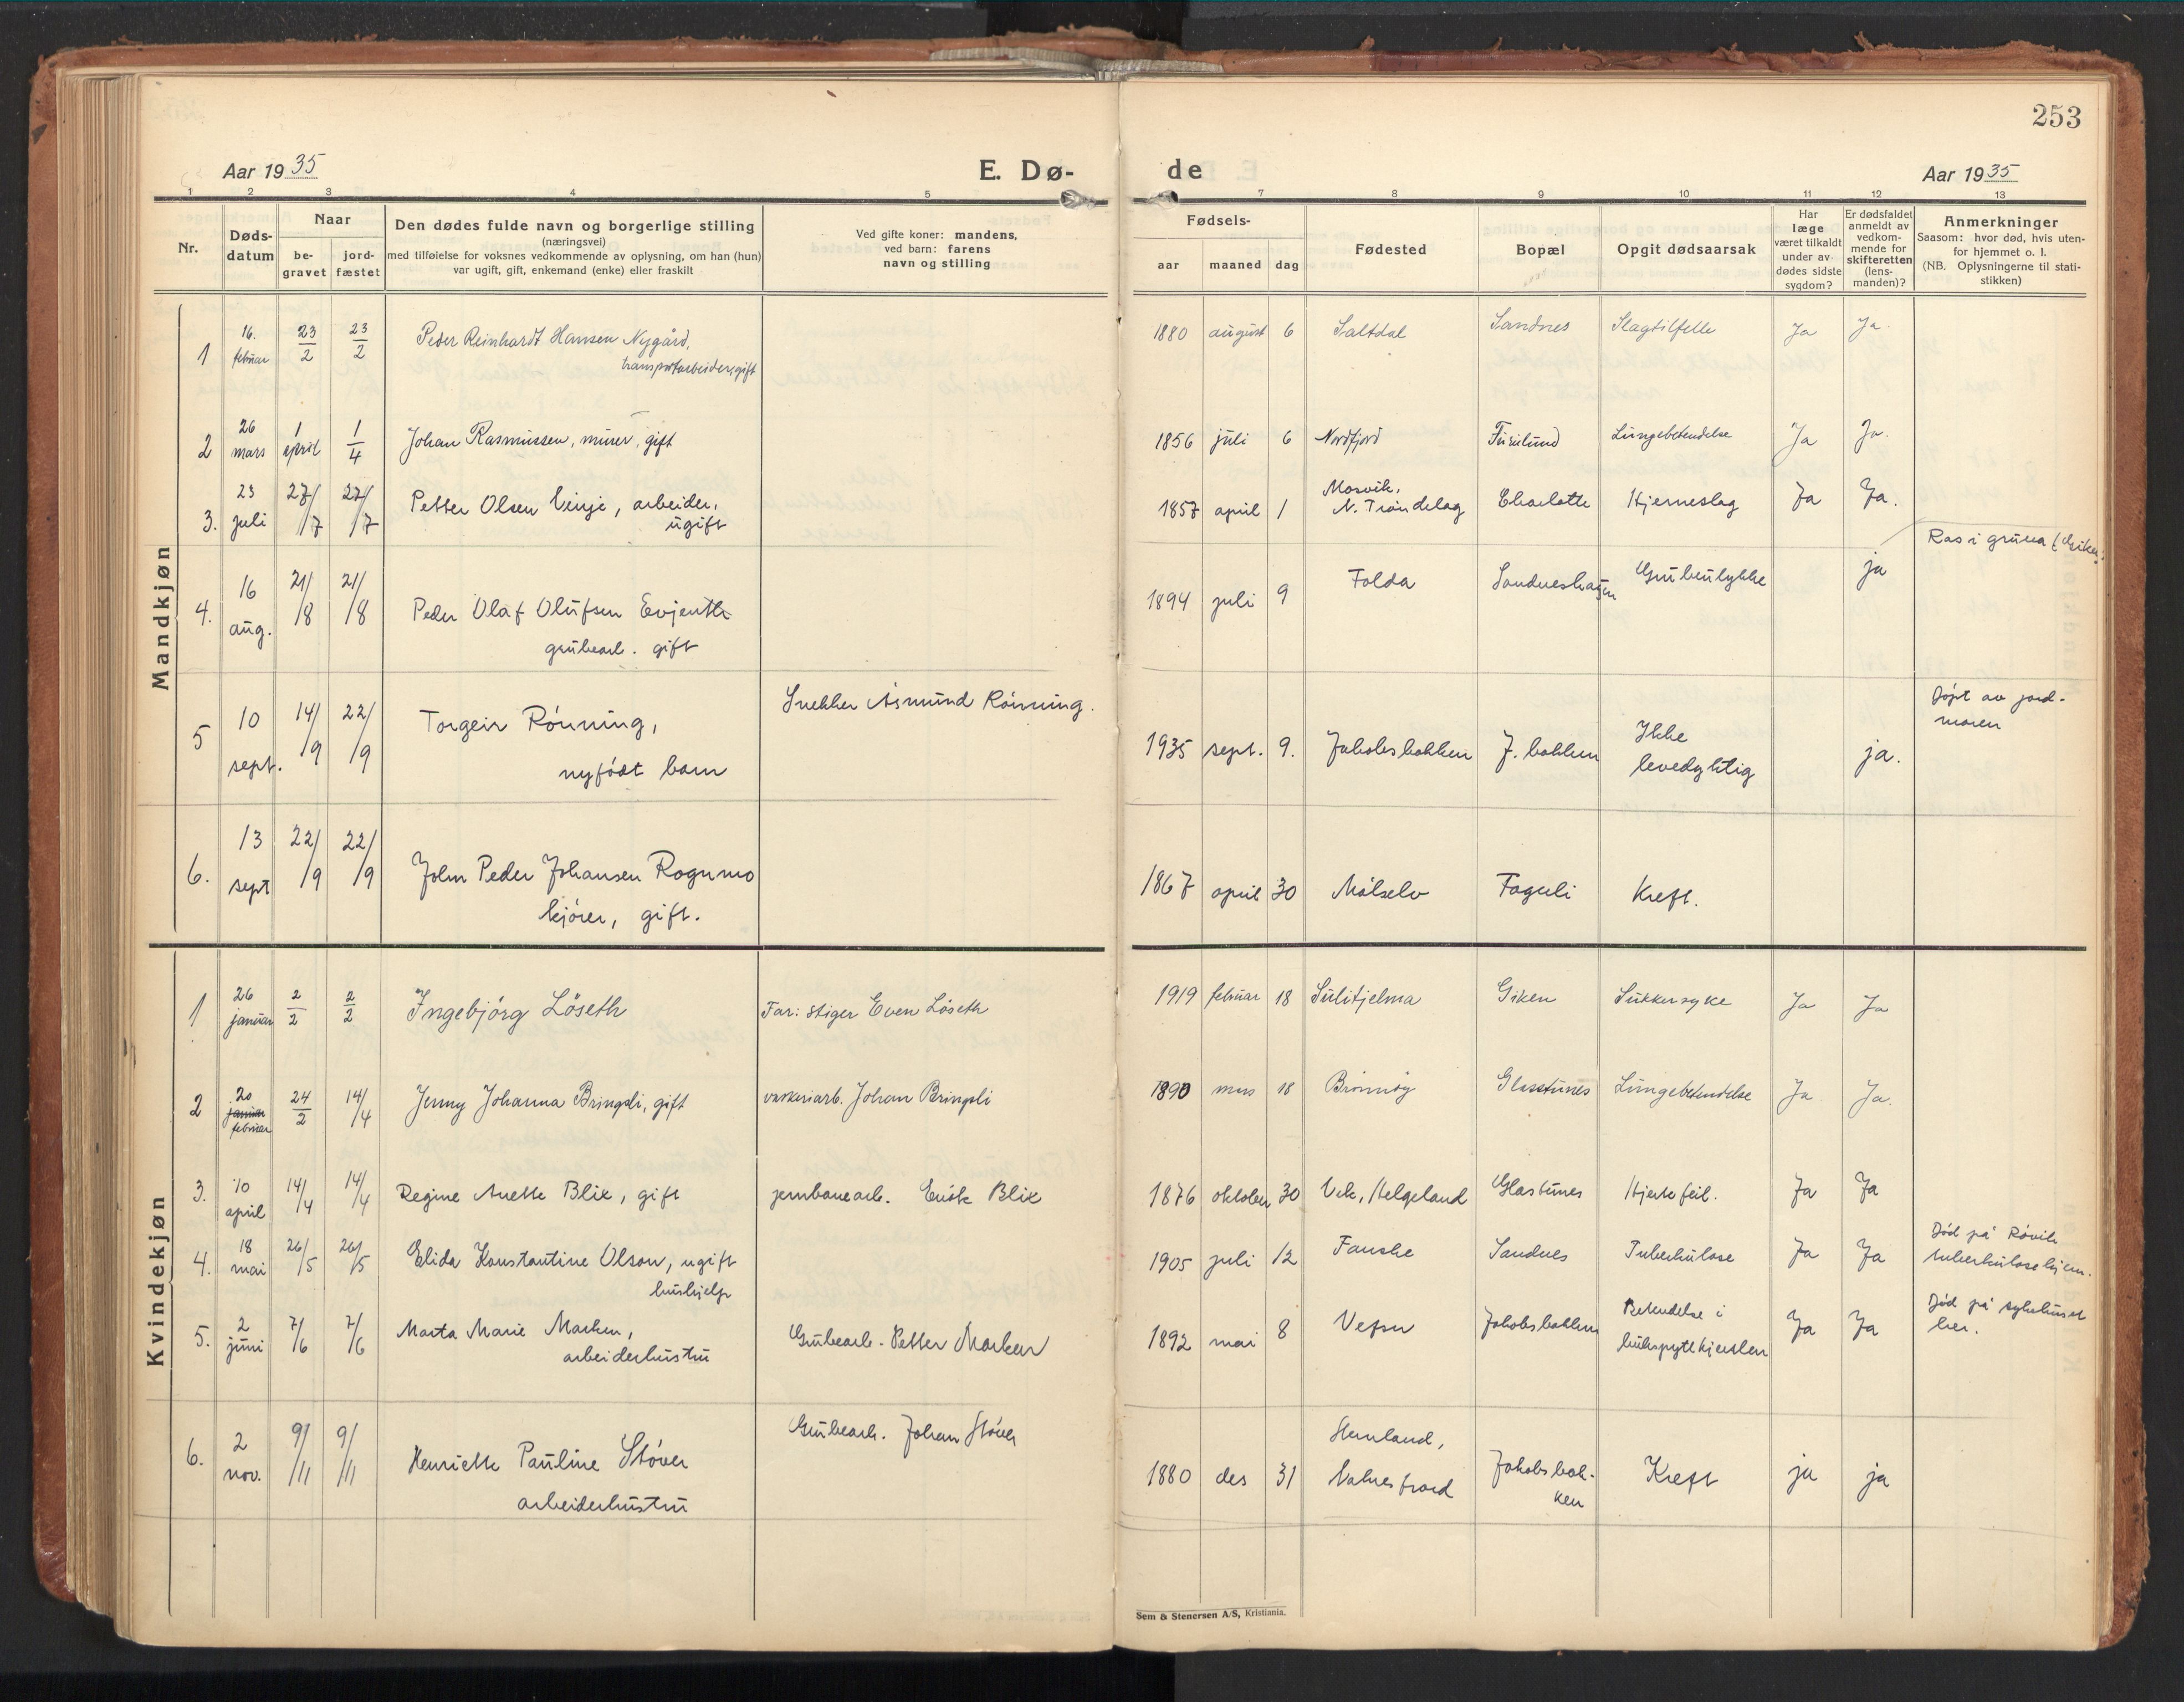 253
Aar 1935
E. Dø-
de
Aar 1935
1 2 3 4 5 7 8 9 10 11 12 13
Nr.
Døds-
datum
Naar
be-
gravet
jord-
fæstet
Den dødes fulde navn og borgerlige stilling
(næringsvei)
med tilføielse for voksnes vedkommende av oplysning, om han (hun)
var ugift, gift, enkemand (enke) eller fraskilt
Ved gifte koner: mandens,
ved barn: farens
navn og stilling
Fødsels-
aar maaned dag
Fødested
Bopæl
Opgit dødsaarsak
Har
læge
været tilkaldt
under av-
dødes sidste
sygdom?
Er dødsfaldet
anmeldt av
vedkom-
mende for
skifteretten
(lens-
manden)?
Anmerkninger
Saasom: hvor død, hvis uten-
for hjemmet o. l.
(NB. Oplysningerne til stati-
stikken)
Mandkjøn
1 16. februar 23/2 23/2 Peder Reinhardt Hansen Nygård,
transportarbeider, gift
1880 august 6 Saltdal Sandnes Slagtilfelle Ja Ja.
2 26 mars 1 april 1/4 Johan Rasmussen, murer, gift
1856 juli 6 Nordfjord Furulund Lungebetendelse Ja Ja.
3. 23 juli 27/7 27/7 Petter Olsen Vinje, arbeider,
ugift
1857 april 1 Mosvik,
N. Trøndelag Charlotte Hjerneslag Ja Ja.
4. 16 aug. 21/8 21/8 Peder Olaf Olufsen Evjenth
grubearb. gift
1894 juli 9 Folda Sandneshaugen Grubeulykke ja Ras i gruva (Giken)
5 10 sept. 14/9 22/9 Torgeir Rönning,
nyfödt barn
Snekker Asmund Rönning.
1935 sept. 9. Jakobsbakken J. bakken Ikke
levedyktig ja. Döpt av jord-
moren
6. 13 sept 22/9 22/9 John Peder Johansen Rognmo
kjörer, gift.
1867 april 30 Målselv Fagerli Kreft.
Kvindekjøn
1 26 januar 2/2 2/2 Ingebjörg Löseth Far: stiger Even Löseth
1919 februar 18 Sulitjelma Giken Sukkersyke Ja Ja
2 20 januar februar 24/2 14/4 Jenny Johanna Bringsli, gift vaskeriarb. Johan Bringsli
1890 mars 18 Brönnöy Glastunes Lungebetendelse Ja Ja.
3. 10 april 14/4 14/4 Regine Anette Blix, gift jernbanearb. Blix
1876 oktober 30 Helgeland Glastunes Hjertefeil. Ja Ja
4. 18 mai 26/5 26/5 Elida Konstantine Olsen, ugift
hushjelp
1905 juli 12 Fauske Sandnes Tuberkulose Ja Ja Död på Rövik
tuberkulosehjem.
5. 2 juni 7/6 7/6 Marta Marie Marken,
arbeiderhustru
Grubearb. Petter Marken
1892 mai 8 Vefsn Jakobsbakken Betendelse i
bukspyttkjertlen Ja Ja Död på sykehuset
her.
6. 2 nov. 9/11 9/11 Henriette Pauline Stöver
arbeiderhustru
Grubearb. Johan Stöver
1880 des 31 Valnesfjord Jakobsbak-
ken Kreft ja ja
Sem & Stenersen A/S, Kristiania.